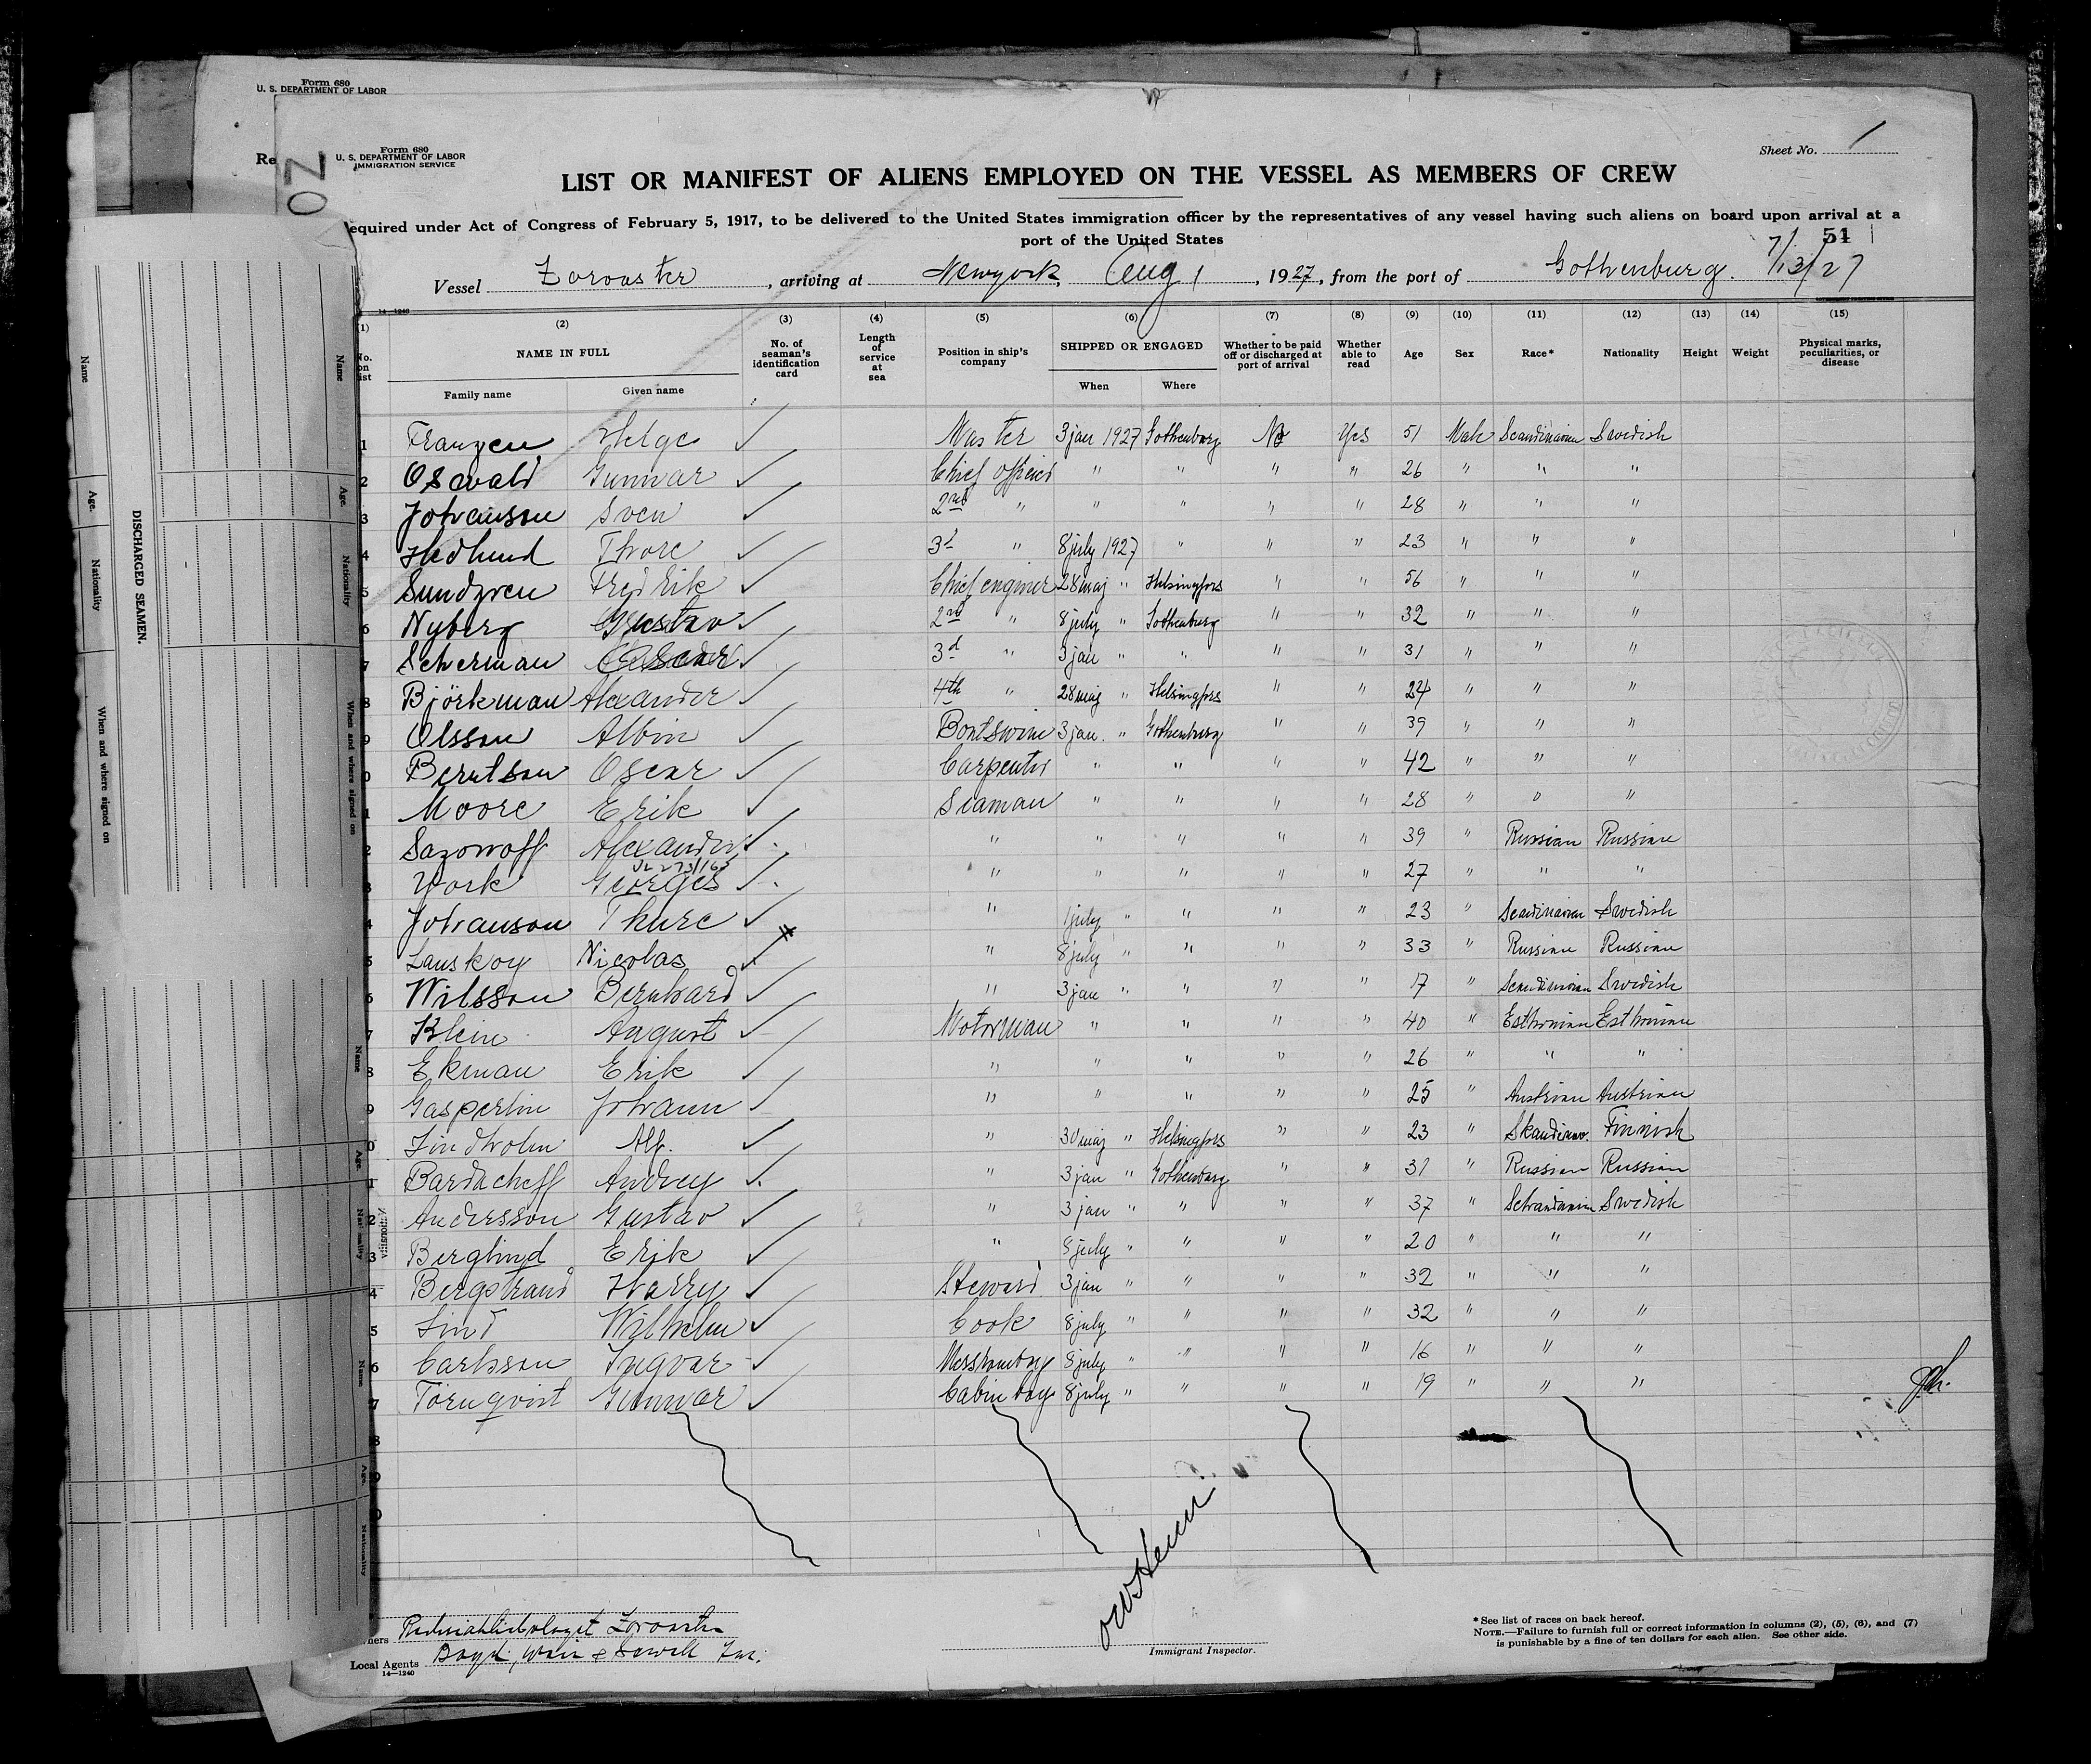 Form 680
U. S. DEPARTMENT OF LABOR
Re
Form 680
U. S. DEPARTMENT OF LABOR
IMMIGRATION SERVICE
Sheet No. 1
LIST OR MANIFEST OF ALIENS EMPLOYED ON THE VESSEL AS MEMBERS OF CREW
equired under Act of Congress of February 5, 1917, to be delivered to the United States immigration officer by the representatives of any vessel having such aliens on board upon arrival at a
port of the United States
51
Vessel Zoroaster, arriving at Newyork, Aug 1, 1927, from the port of Gothenburg. 7/13/27
14—1240
(1) (2) (3) (4) (5) (6) (7) (8) (9) (10) (11) (12) (13) (14) (15)
No. on list NAME IN FULL No. of seaman's identification card Length of service at sea Position in ship's company SHIPPED OR ENGAGED Whether to be paid off or discharged at port of arrival Whether able to read Age Sex Race* Nationality Height Weight Physical marks, peculiarities, or disease
Family name Given name When Where
1 Franzen Helge Master 3 jan 1927 Gothenburg No Yes 51 Male Scandinavian Swedish
2 Oswald Gunnar Chief officer " " " " 26 " " "
3 Johanson Sven 2nd " " " " " 28 " " "
4 Hedlund Thore 3d " 8 july 1927 " " " 23 " " "
5 Sundgren Fredrik Chief enginer 28 maj " Helsingfors " " 56 " " "
6 Nyberg Gustav 2nd " 8 july " Gothenburg " " 32 " " "
7 Scherman Oscar 3d " 3 jan " " " " 31 " " "
8 Björkman Alexander 4th " 28 maj " Helsingfors " " 24 " " "
9 Olsson Albin Boatswine 3 jan. " Gothenburg " " 39 " " "
0 Berntson Oscar Carpenter " " " " 42 " " "
1 Moore Erik Seaman " " " " 28 " " "
2 Sazonoff Alexander " " " " " 39 " Russian Russian
3 York Georges " " " " " 27 " " "
4 Johanson Thure " 1 july " " " " 23 " Scandinavian Swedish
5 Lanskoy Nicolas " 8 july " " " " 33 " Russian Russian
6 Wilsson Bernhard " 3 jan " " " " 17 " Scandinavian Swedish
7 Klein August Motorman " " " " 40 " Esthonian Esthonian
8 Ekman Erik " " " " " 26 " " "
9 Gasperlin Johann " " " " " 25 " Austrian Austrian
0 Lindholm Alf. " 30 maj " Helsingfors " " 23 " Skandinav. Finnish
1 Bardacheff Andrey " 3 jan " Gothenburg " " 31 " Russian Russian
2 Andersson Gustav " 3 jan " " " " 37 " Swedish
3 Berglind Erik " 8 july " " " " 20 " " "
4 Bergstrand Harry Steward 3 jan " " " " 32 " " "
5 Lind Wilhelm Cook 8 july " " " " 32 " " "
6 Carlsson Ingvar Messroomboy 8 july " " " " 16 " " "
7 Törnqvist Gunnar Cabin boy 8 july " " " " 19 " " "
8
9
0
ners Zoroaster
Local Agents Boyd, Weir & Sewell Inc.
14—1240
Immigrant Inspector.
* See list of races on back hereof.
NOTE.—Failure to furnish full or correct information in columns (2), (5), (6), and (7)
is punishable by a fine of ten dollars for each alien. See other side.
DISCHARGED SEAMEN.
Name
Age.
Nationality
When and where signed on
Name
Age.
Nationality
When and where signed on
Name
Age.
Nationality
Name
Age.
Nationality